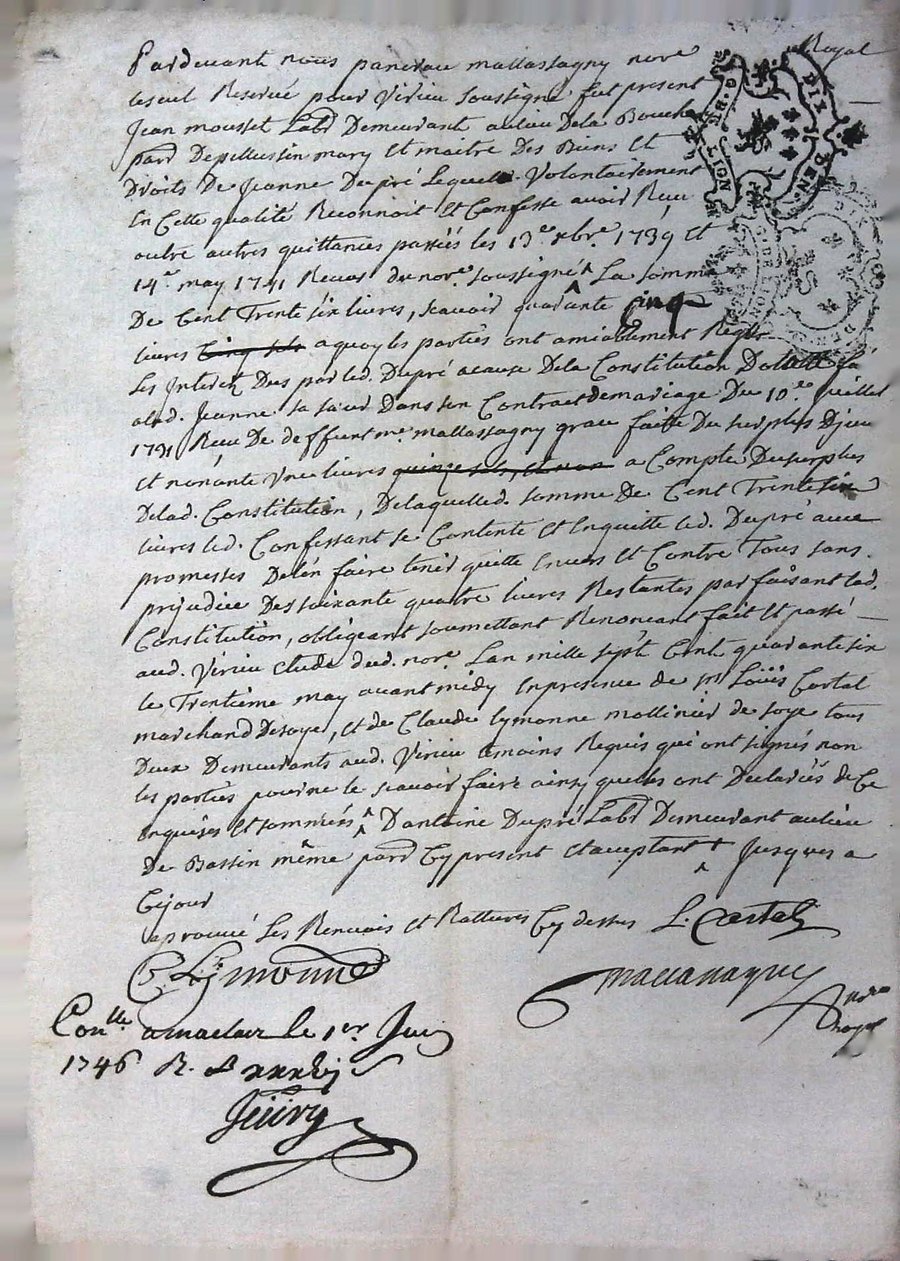 Pardevant nous pancrau mallassagny nore Royal
Reservé pour Virieu soussigné fut present
Jean mousset Labr Demeurant au lieu De la Bouche
parr De pellussin mary Et maitre Des Biens Et
Droits De Jeanne Dupré Lequel Volontairement
En Cette qualité Reconnoit Et Confesse avoir Reçu
outre autres quittances passéés les 13e xbre 1739 Et
14e may 1741 Reçues du nore soussigné ^ La somme
De Cent Trente six livres, scavoir quarante Cinq
livres Cinq sols a quoy les parties ont amiablement Reglé
Les Interets Dus par led. Dupré a cause De la Constitution Dotalle
a lad. Jeanne sa sœur Dans son Contract de mariage Du 10e Juillet
1731 Reçu De deffunt me mallassagny
Et nonante Une livres quinze sols a Compte Du surplus
De lad. Constitution, De laquelle d. somme De Cent Trente six
livres led. Confessant se Contente Et En quitte led. Dupré avec
promesses De l'en faire tenir quitte Envers Et Contre Tous sans
prejudice Des soixante quatre livres Restantes parfaisant lad.
Constitution, obligeant soumettant Renonceant fait Et passé
aud. Virieu Etude dud. nore Lan mille sept Cent quarante six
le Trentième may avant midy En presence de sr Loüis Certal
marchand De soye, Et de Claude Lymonne mollinier de soye tous
Deux Demeurants aud. Virieu temoins Requis qui ont signés non
les parties pour ne le scavoir faire ainsy quelles ont Declarées de Ce
enquises Et sommées ^ D'antoine Dupré Labr Demeurant au lieu
De Bassin même parr Cy present Et acceptant + ^ Jusques a
Ce jour
aprouvé Les Renvois Et Rattures Cy dessus L. Certal
C. Lymonne
mallassagny
nore royal
Conlle a maclas le 1er Juin
1746 R.